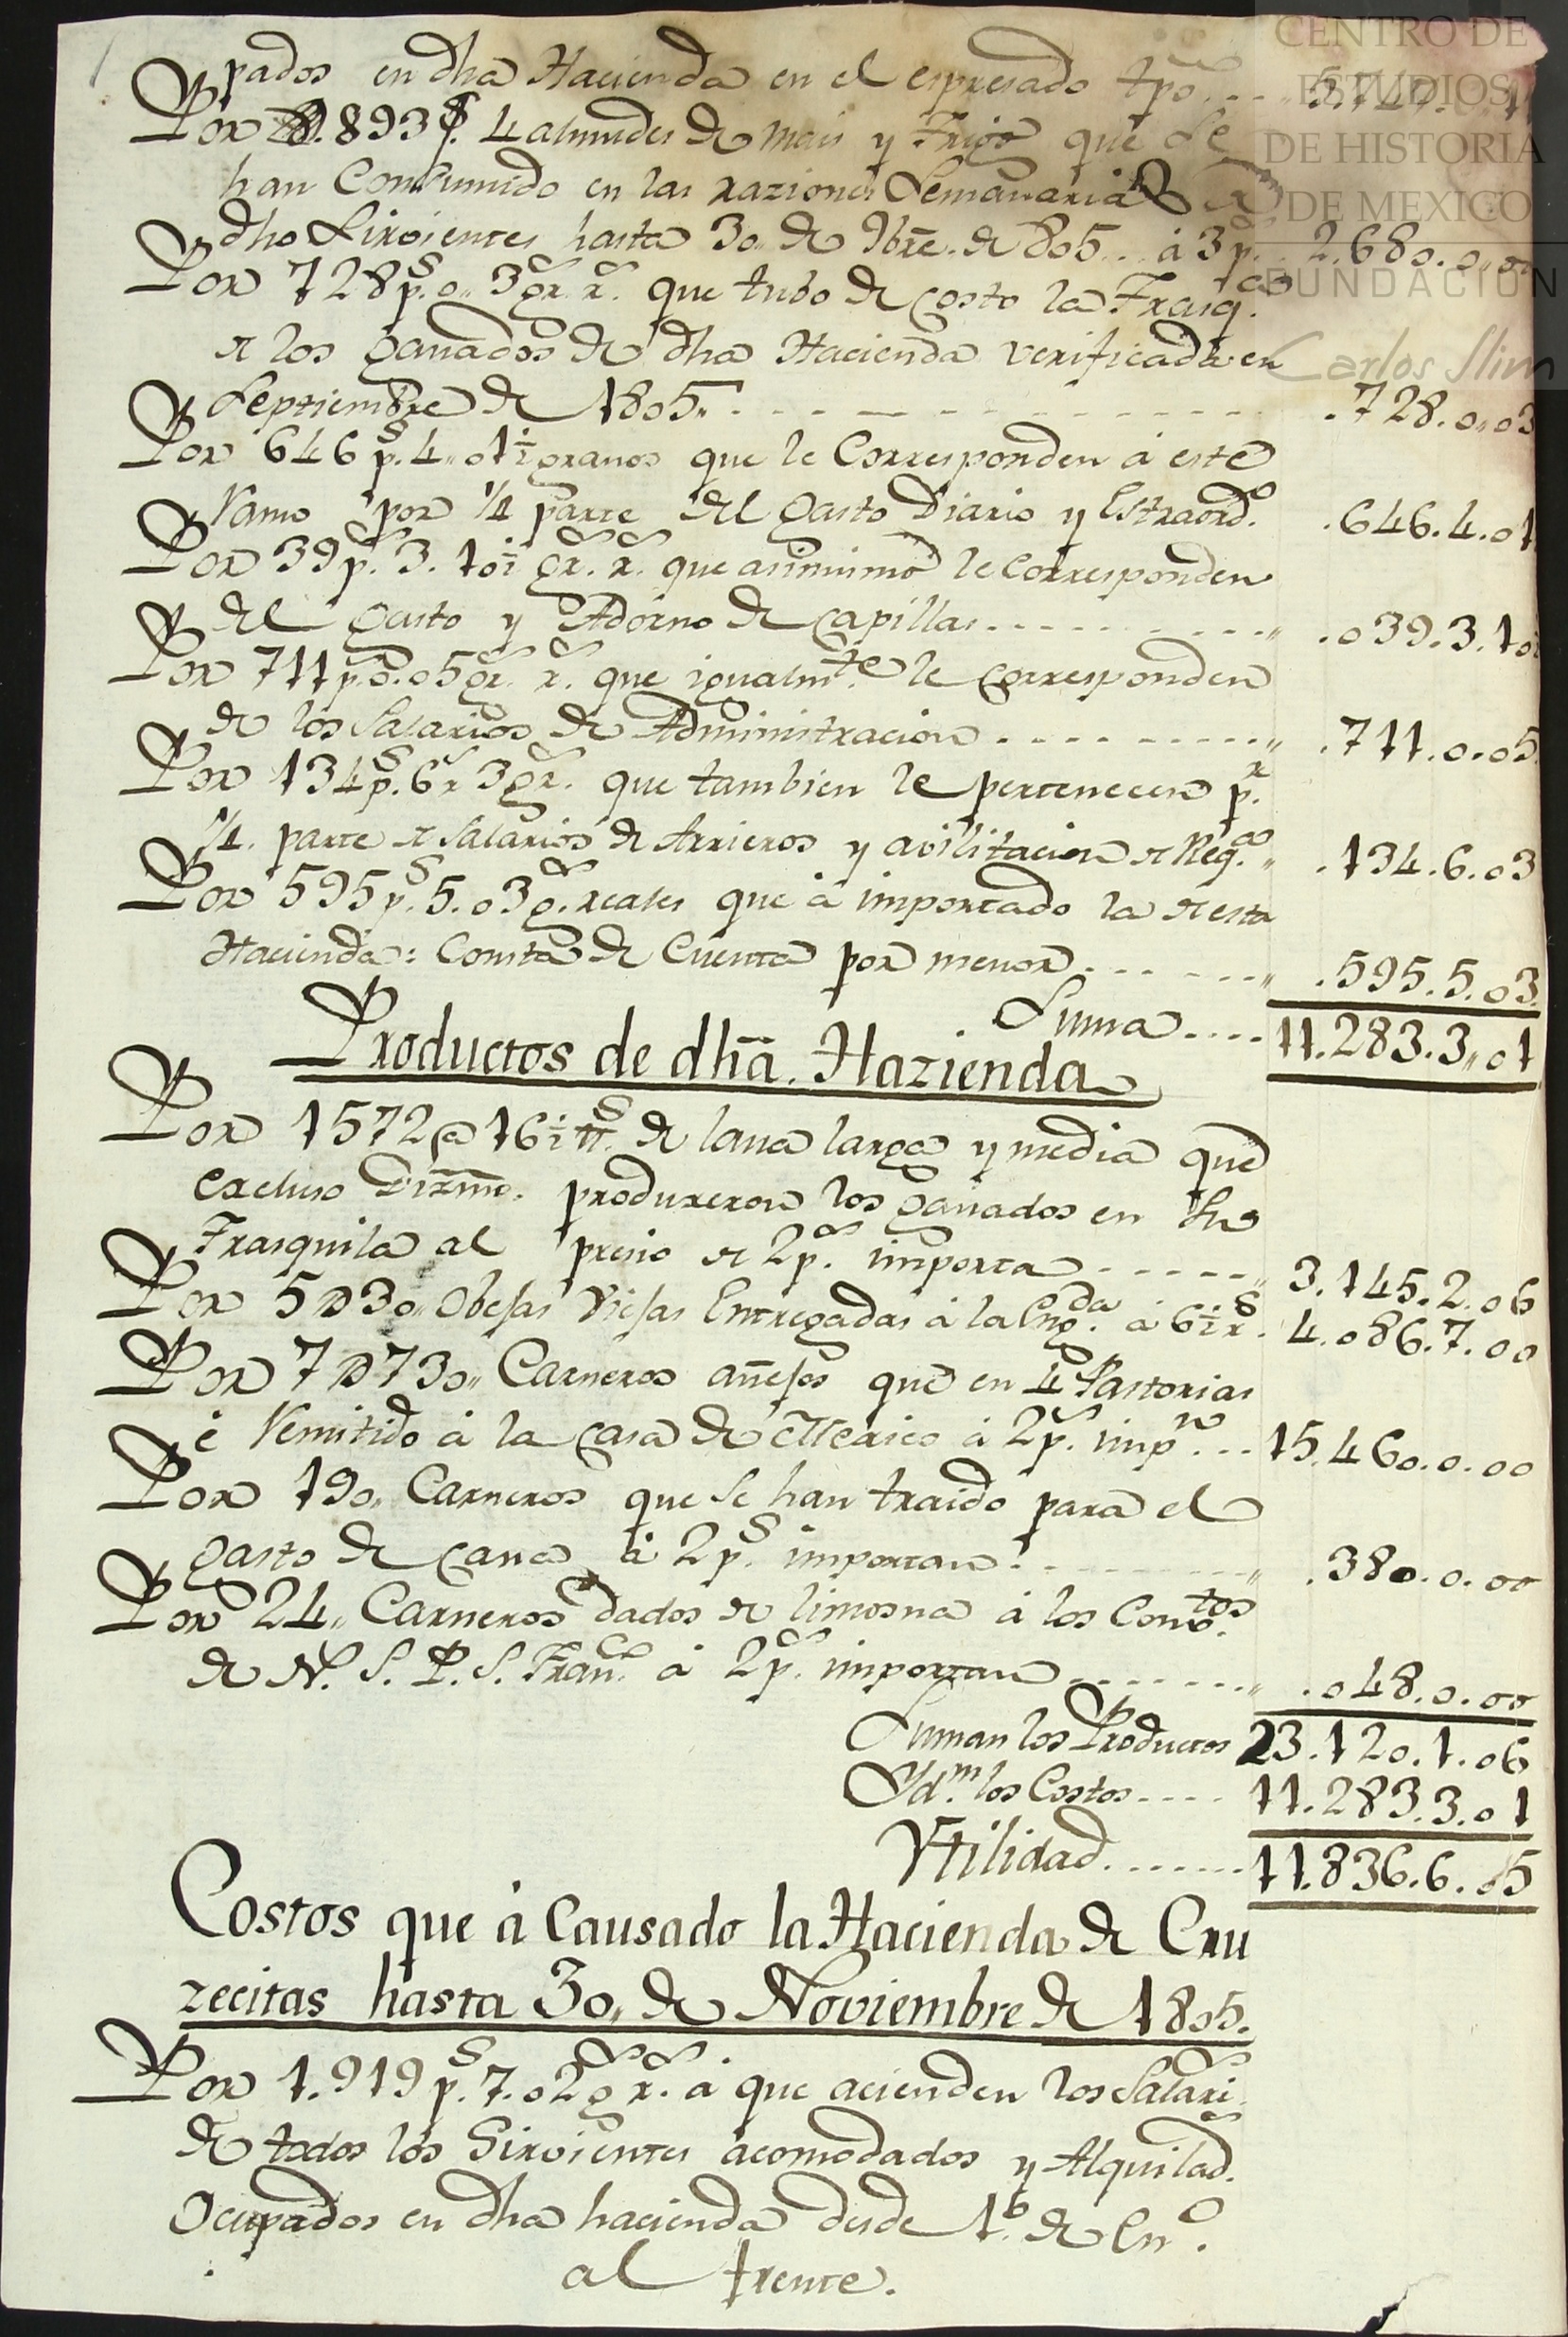 CENTRO DE
ESTUDIOS
DE HISTORIA
DE MEXICO
FUNDACIÓN
Carlos Slim
pados en dha Hacienda en el espresado tpõ....
Por 893 f. 4 almudes de Mais y Trigo que se
han Consumido en las raziones Semanarias
dho Sirvientes hasta 30,, de 9bre. de 805... á 3 p. 2.680.0,,00
Por 728 p.s 0,, 3 gr.s r.s que tubo de costo la Trasq.a
de los ganados de dha Hacienda verificada en
Septiembre de 1805,, .728.0,,03
Por 646 p.s 4,, 01½ granos que le Corresponden á este
Ramo por 1/4 parte del gasto Diario y Estraord.o .646.4.01
Por 39 p.s 3. 10½ gr.s r.s que asimismo le corresponden
del gasto y Adorno de Capillas .039.3.10
Por 711 p.s 0. 05 gr.s r.s que igualm.te le corresponden
de los Salarios de Administracion .711.0.05
Por 134 p.s 6 r 3 gr.s que tambien le pertenecen p.r
1/4. parte de Salarios de Arrieros y avilitacion de Req.as .134.6.03
Por 595 p.s 5. 03 g.s reales que á importado la de esta
Hacienda: Consta de Cuenta por menor .595.5.03
Suma.... 11.283.3,,01
Productos de dhã. Hazienda
Por 1572 @ 16½ tt.s de lana larga y media que
excluso Diezmo. produxeron los ganados en su
Trasquila al presio de 2 p.s importa 3.145.2.06
Por 5 D 30,, Obejas Viejas Entregadas á la Eng.da á 6½ r.s 4.086.7.00
Por 7 D 730,, Carneros añejos que en 4 Pastorias
é Remitido á la Casa de Mexico á 2 p.s imp.n ... 15.460.0.00
Por 190,, Carneros que se han traido para el
gasto de Casa á 2 p.s importan .380.0.00
Por 24,, Carneros dados de limosna á los Conv.tos
de N. S. P. S. Fran.co á 2 p.s importan .048.0.00
Suman los Productos 23.120.1.06
Yd.m los Costos.... 11.283.3.01
Vtilidad....... 11.836.6.05
Costos que á Causado la Hacienda de Cru
zecitas hasta 30,, de Noviembre de 1805.
Por 1.919 p.s 7. 02 g.s r.s á que acienden los Salari.s
de todos los Sirvientes acomodados y Alquilad.s
Ocupados en dha hacienda desde 1.o de En.o
al frente.